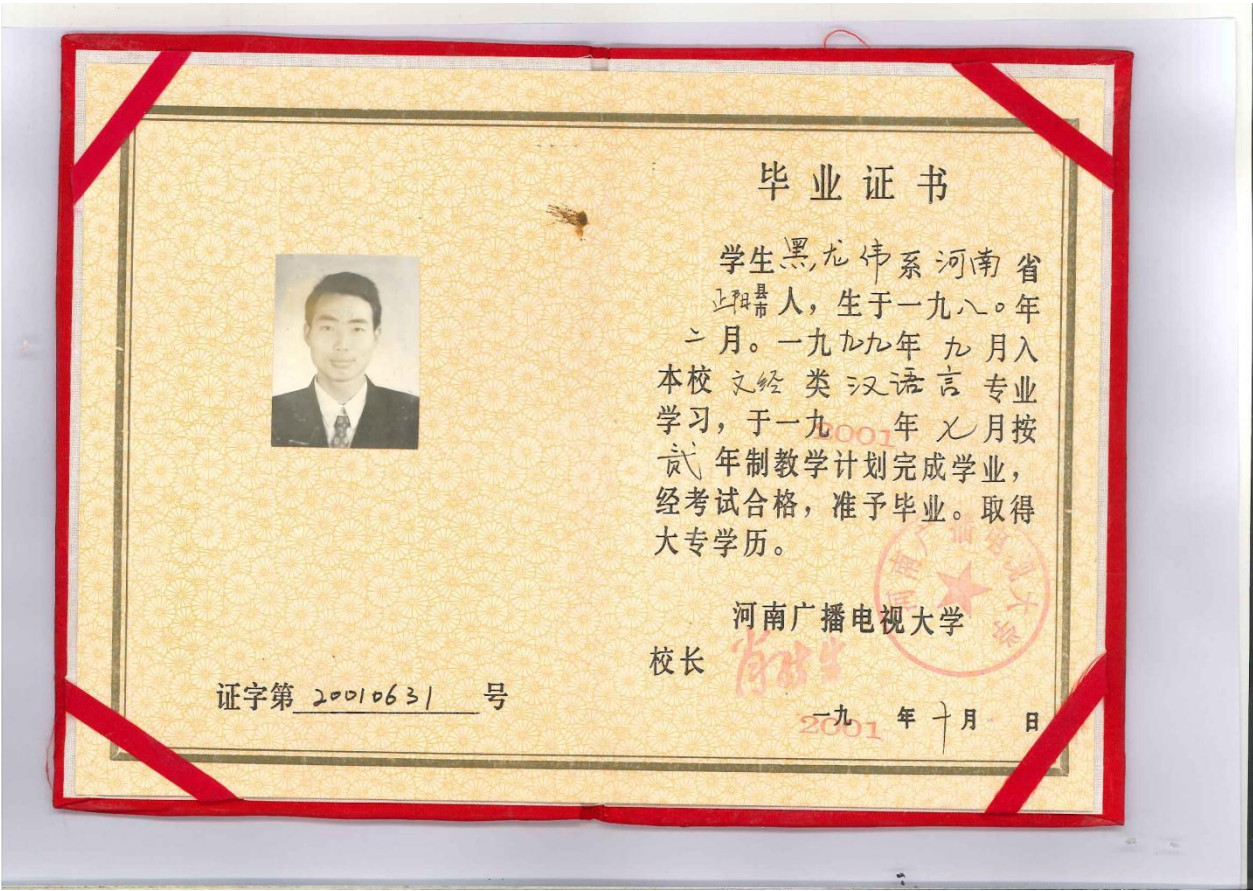 毕业证书
学生黑龙伟系河南省
正阳县市人，生于一九八〇年
二月。一九九九年九月入
本校文经类汉语言专业
学习，于一九2001年七月按
贰年制教学计划完成学业，
经考试合格，准予毕业。取得
大专学历。
河南广播电视大学
校长
河南广播电视大学
一九2001年十月 日
证字第20010631号